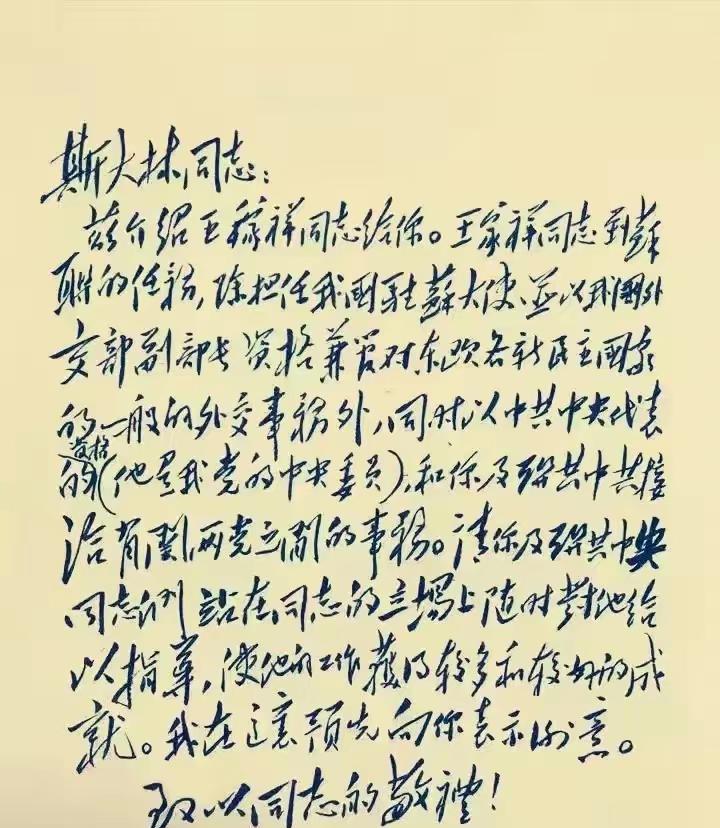 斯大林同志：
兹介绍王稼祥同志给你。王家祥同志到蘇
联的任務，除担任我國駐蘇大使、並以我國外
交部副部長资格兼管对东欧各新民主國家
的一般的外交事務外，同时以中共中央代表
资格
的（他是我党的中央委員），和你及联共中共接
洽有関两党之間的事務。请你及联共中央
同志们站在同志的立場上随时對他给
以指導，使他的工作獲得较多和较好的成
就。我在這裏预先向你表示谢意。
致以同志的敬禮！